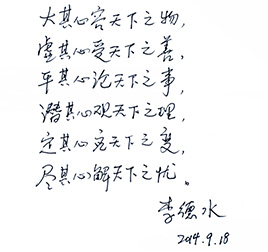 大其心容天下之物，
虚其心受天下之善，
平其心论天下之事，
潜其心观天下之理，
定其心应天下之变，
尽其心解天下之忧。
李德水
2014.9.18